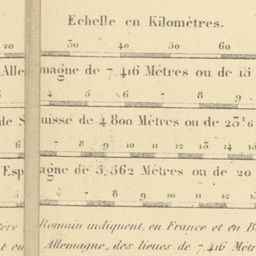 Echelle en Kilomètres.
20 30 40 50 60
Allemagne de 7,416 Mètres ou de 15
4 5 6 7 8 9
de Suisse de 4800 Mètres ou de 23
6 7 8 9 10 11 12 13 14
Espagne de 5,562 Mètres ou de 20
6 7 8 9 10 11 12
Romain indiquent, en France et en B
Allemagne, des lieues de 7416 Mètr